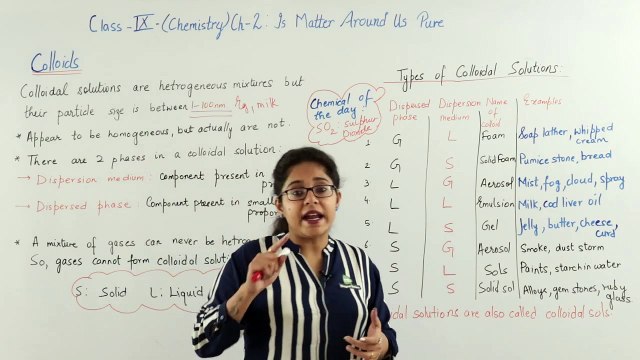 Class - IX - (Chemistry) Ch-2: Is Matter Around Us Pure
Colloids
Colloidal solutions are hetrogeneous mixtures but
their particle size is between 1-100nm Eg, milk
* Appear to be homogeneous, but actually are not.
* There are 2 phases in a colloidal solution:
→ Dispersion medium: component present in
→ Dispersed phase: Component present in
* A mixture of gases can never be
So, gases cannot form colloidal
S: Solid L: Liquid
Chemical of
the day
SO2: Sulphur
Dioxide
Types of Colloidal Solutions:
Dispersed phase Dispersion medium Name of colloid Examples
1 G L Foam Soap lather, whipped cream
2 G S Solid Foam Pumice stone, bread
3 L G Aerosol Mist, fog, cloud, spray
4 L L Emulsion Milk, cod liver oil
5 L S Gel Jelly, butter, cheese, curd
6 S G Aerosol Smoke, dust storm
S L Sols Paints, starch in water
S S Solid sol Alloys, gem stones, ruby glass
solutions are also called colloidal sols.